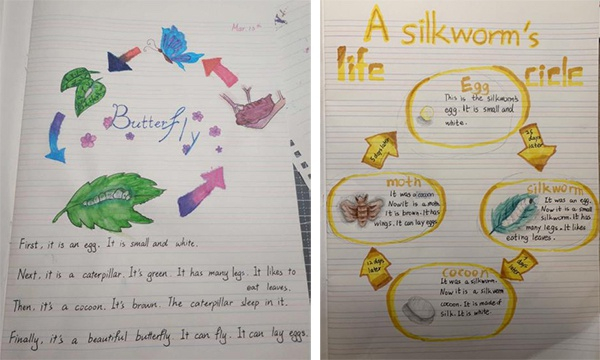 Butter
fly
First, it is an egg. It is small and white.
Next, it is a caterpillar. It's green. It has many legs. It likes to
eat leaves.
Then, it's a cocoon. It's brown. The caterpillar sleep in it.
Finally, it's a beautiful butterfly. It can fly. It can lay eggs.
A silkworm's
life cicle
Egg
This is the silkworm's
egg. It is small and
white.
days
later
silkworm
It was an egg.
Now it is a small
silkworm. It has
many legs. It likes
eating leaves.
days
later
cocoon
It was a silkworm.
Now it is a silkworm
cocoon. It is made of
silk. It is white.
12 days
later
moth
It was a cocoon
Now it is a moth
It is brown. It has
wings. It can lay eggs.
5 days
later